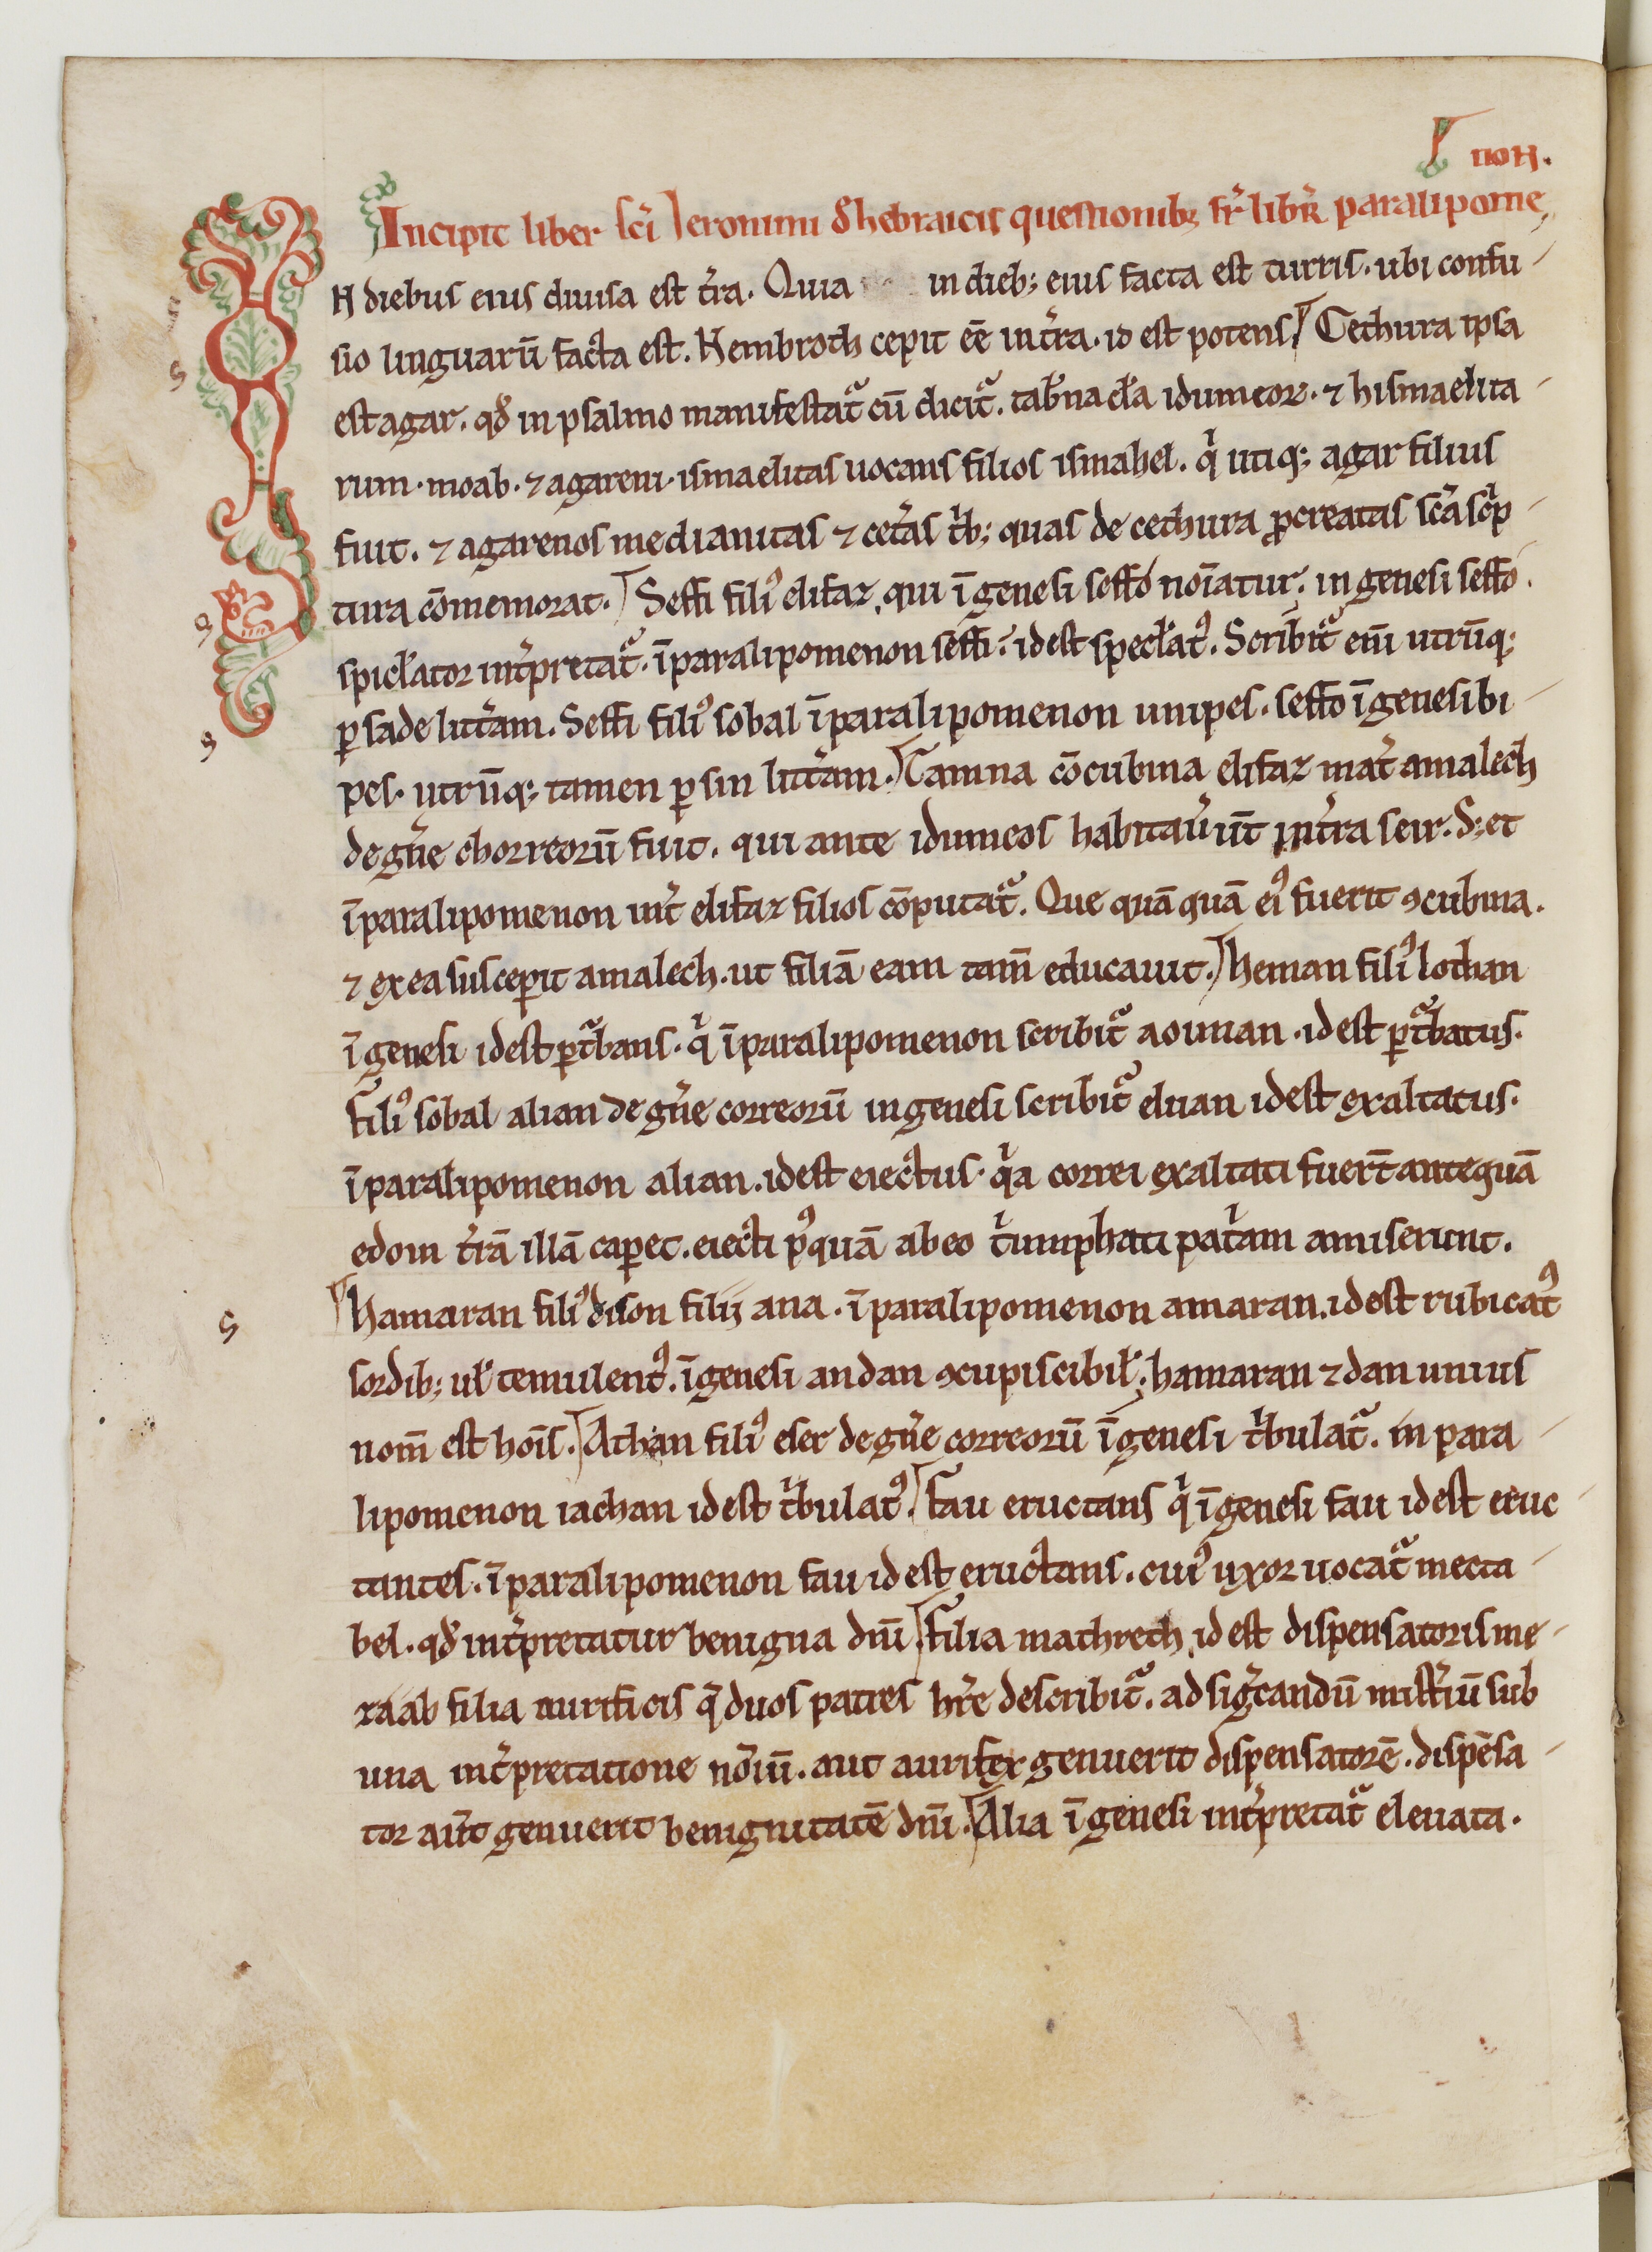 non.
Incipit liber sc̄i Ieronimi đ hebraicis questionib; sr̄ libr̄ paralipome
N diebus eius diuisa est t̄ra. Quia in dieb; eius facta est turris. ubi confu
sio linguarū facta est. Nembroth cepit eē in t̄ra. id est potens. Cethura ipsa
est agar. qđ in psalmo manifestat᷑ cū dicit᷑. tab̄nacl̄a idumeoꝝ. ⁊ hismaelita
rum. moab. ⁊ agareni. ismaelitas uocans filios ismahel. qͥ utiq; agar filius
fuit. ⁊ agarenos medianitas ⁊ cet̄as tͥb; quas de cethura ꝓcreatas sc̄a scͥp
tura cōmemorat. Seffi filiꝰ elifaz, qui ī genesi seffo noīatur. in genesi seffo.
spicl̄ator int̄pretat᷑. ī paralipomenon seffi. id est specl̄atꝰ. Scribit᷑ enī utrūq;
ꝑ sade litt̄am. Seffi filiꝰ sobal ī paralipomenon unipes. seffo ī genesi bi
pes. utrūq; tamen ꝑ sin litt̄am. Tamna cōcubina elifaz mat̄ amalech
de gn̄e chorreorū fuit. qui ante idumeos habitau̅ūt in t̄ra seir. S; et
ī paralipomenon int̄ elifaz filios cōputat᷑. Que quāquā eiꝰ fuerit ꝯcubina.
⁊ ex ea susceꝑit amalech. ut filiā eam tam̄ educauit. heman filiꝰ lothan
ī genesi id est ꝑt᷑bans. qͥ ī paralipomenon scribit᷑ aoiman. id est ꝑt᷑batus.
Filiꝰ sobal alian de gn̄e correorū in genesi scribit᷑ eluan id est exaltatus.
ī paralipomenon alian. id est eiectus. qͥa correi exaltati fuer̄t antequā
edom t̄rā illā caꝑet. eiecti pꝰquā ab eo tͥumphati patͥam amiserunt.
Hamaran filiꝰ dison filii ana. ī paralipomenon amaran. id est rubicatꝰ
sordib; ul̄ temulentꝰ. ī genesi andan ꝯcupiscibil̄. hamaran ⁊ dan unius
nom̄ est hoīs. Athan filiꝰ eser de gn̄e correorū ī genesi tͥbulat᷑. in para
lipomenon iachan id est tͥbulatꝰ. Fau eructans qͥ ī genesi fau id est eruc
tantes. ī paralipomenon fau id est eructans. cuiꝰ uxor uocat᷑ mecta
bel. qđ int̄pretatur benigna dn̄i. Filia mathrech id est dispensatoris me
zaab filia aurificis q̄ duos patres hr̄e describit᷑. ad sigͥcandū mist̄iū sub
una int̄pretatione noīū. aut aurifex genuerit dispensatorē. dispēsa
tor aūt genuerit benignitatē dn̄i. Alia ī genesi int̄pretat᷑ eleuata.